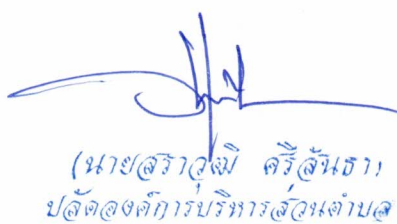 (นายสราวุฒิ ศรีสันธา)
ปลัดองค์การบริหารส่วนตำบล